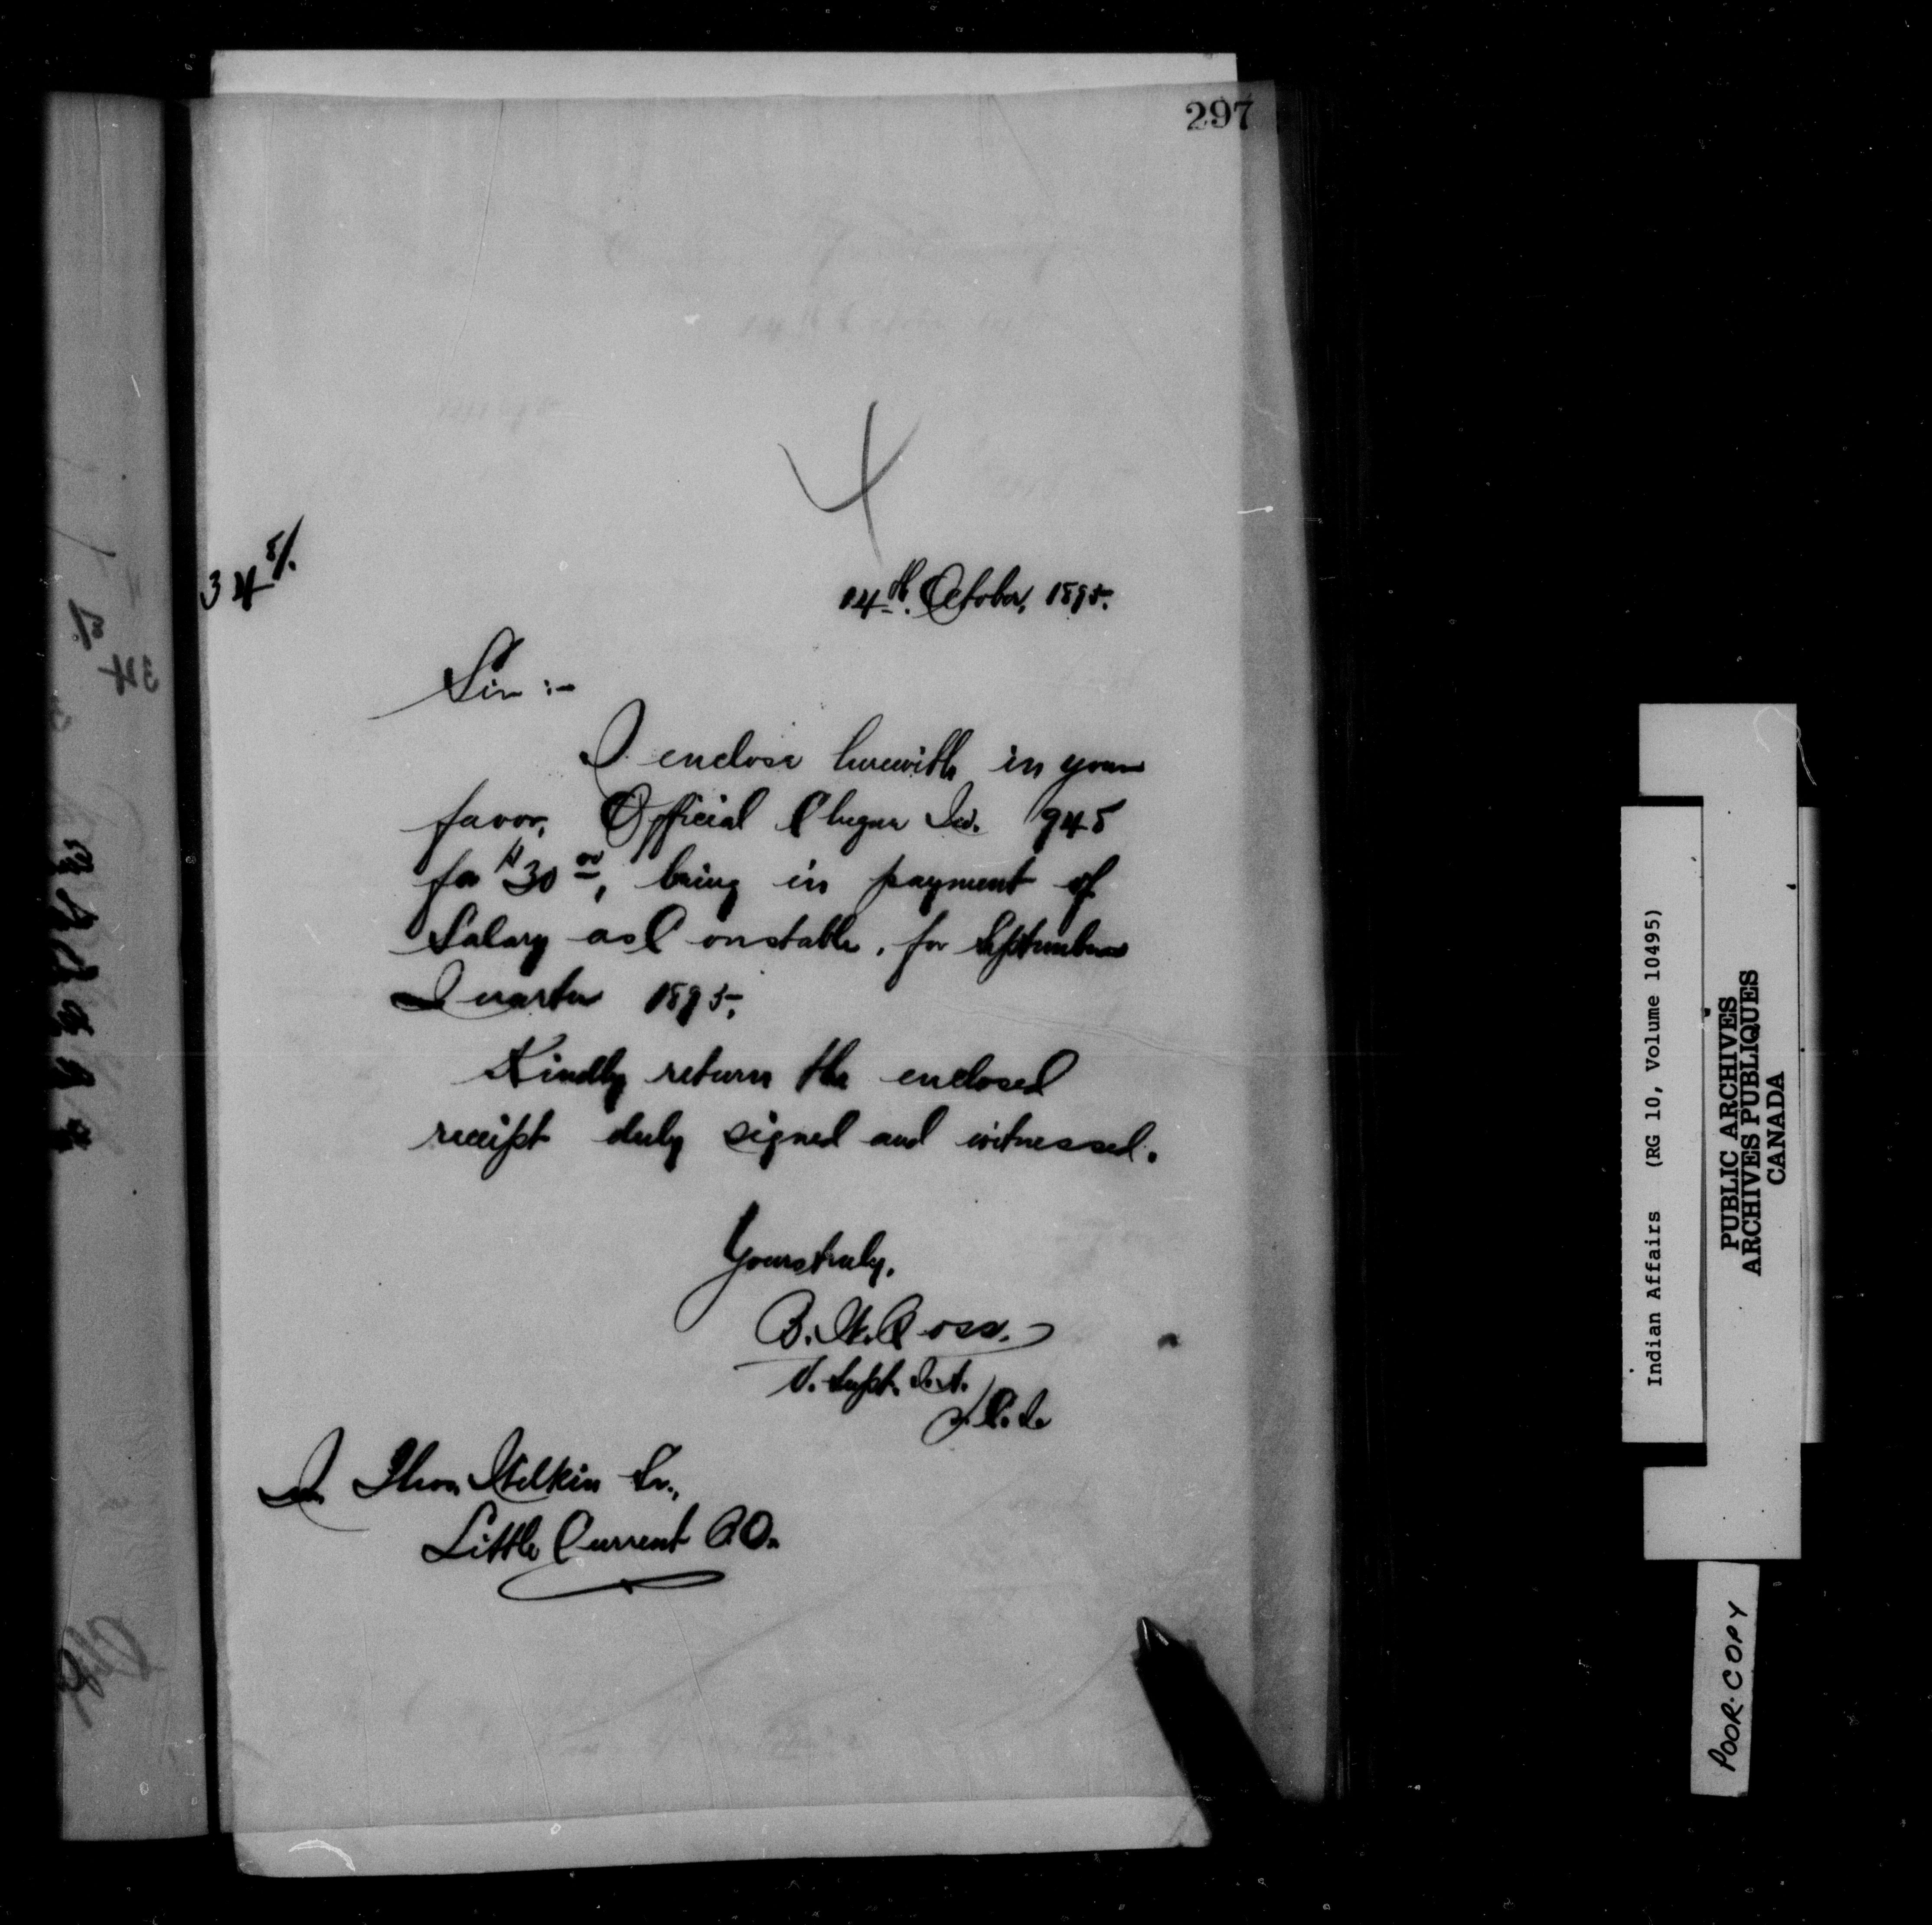 297
34 8/.
14th. October, 1895.
Sir :-
I enclose herewith in your
favor, Official Cheque No. 945
for $30 00, being in payment of
Salary as Constable, for September
Quarter 1895.
Kindly return the enclosed
receipt duly signed and witnessed.
Yours truly,
B. W. Ross.
V. Supt. I. A.
Thos. Wilkin Sr.,
Little Current P.O.
Indian Affairs (RG 10, Volume 10495)
PUBLIC ARCHIVES
ARCHIVES PUBLIQUES
CANADA
POOR COPY